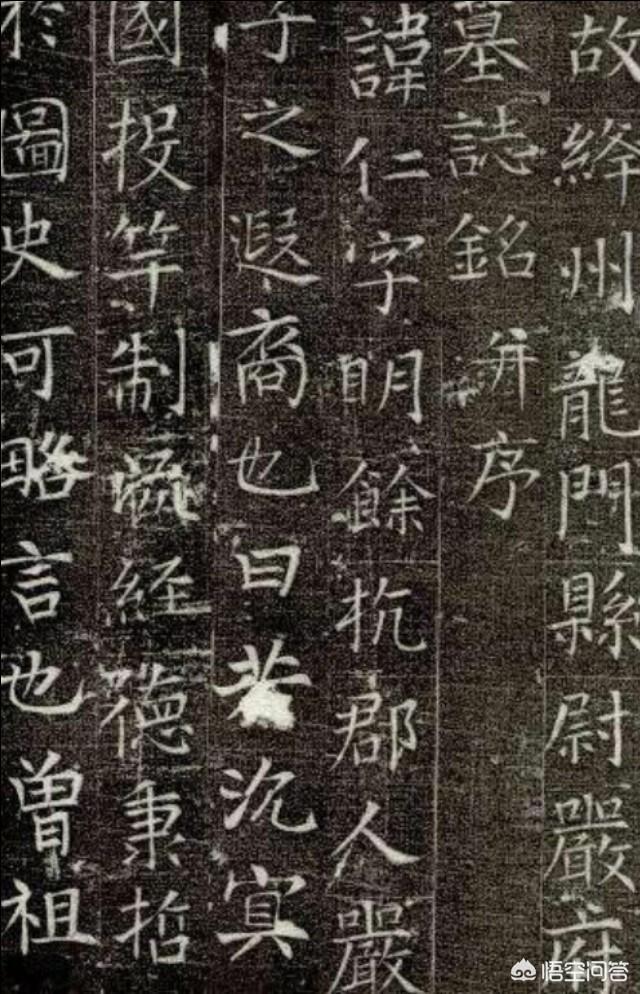 故絳州龍門縣尉嚴府
墓誌銘 并序
諱仁字明餘杭郡人嚴
子之遐裔也曰若沉冥
國投竿制經德秉哲
於圖史可略言也曾祖
悟空问答